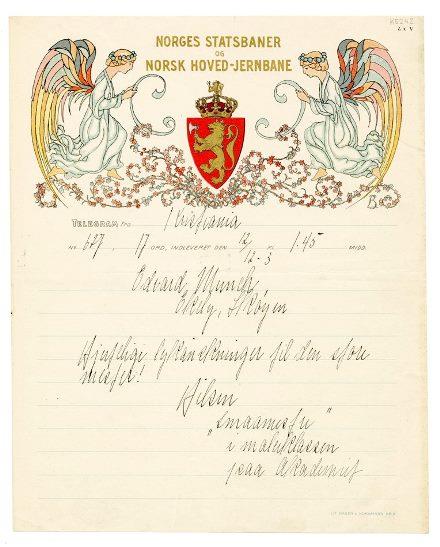 NORGES STATSBANER
OG
NORSK HOVED-JERNBANE
TELEGRAM fra Kristiania
Nr. 627, 17 ORD, INDLEVERET DEN 12/12-3 KL. 1.45 MIDD.
Edvard Munch,
Ekely, Skøyen
Hjertelige lykønskninger til den store
mester!
Hilsen
"smaamestre"
i malerklassen
paa Akademiet